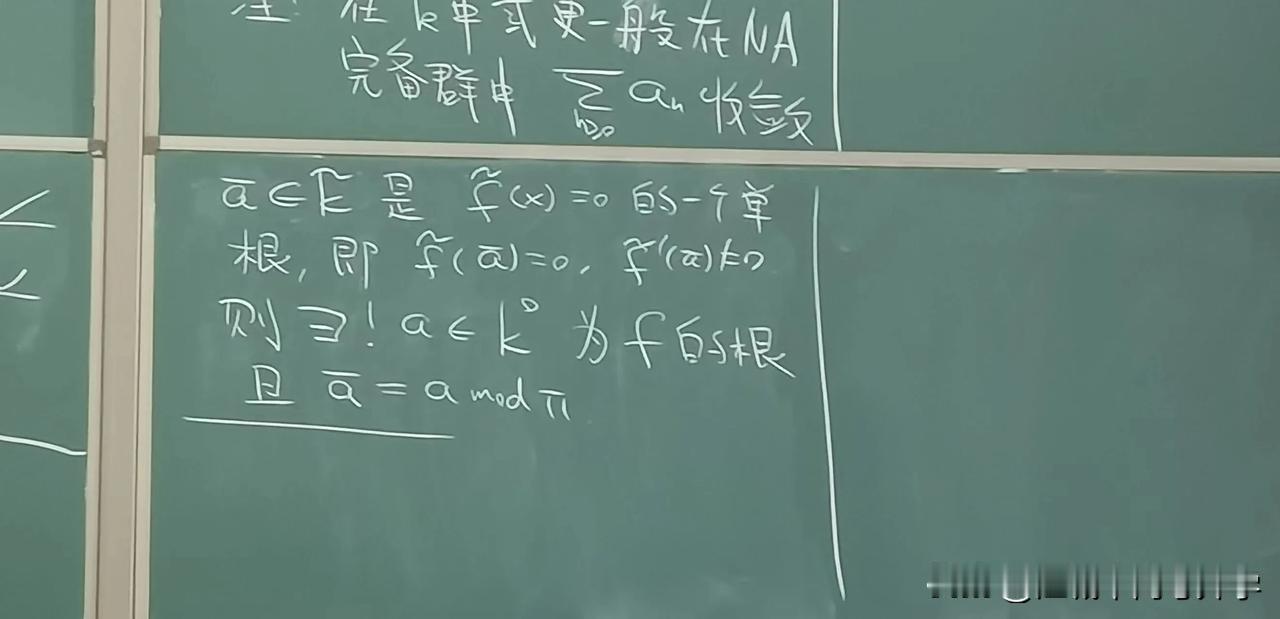 注: 在 k 中或更一般在 NA
完备群中 ∑_{n≥0} a_n 收敛
ā ∈ k̃ 是 f̃(x)=0 的一个单
根, 即 f̃(ā)=0, f̃'(ā)≠0
则 ∃! a ∈ k° 为 f 的根
且 ā = a mod π